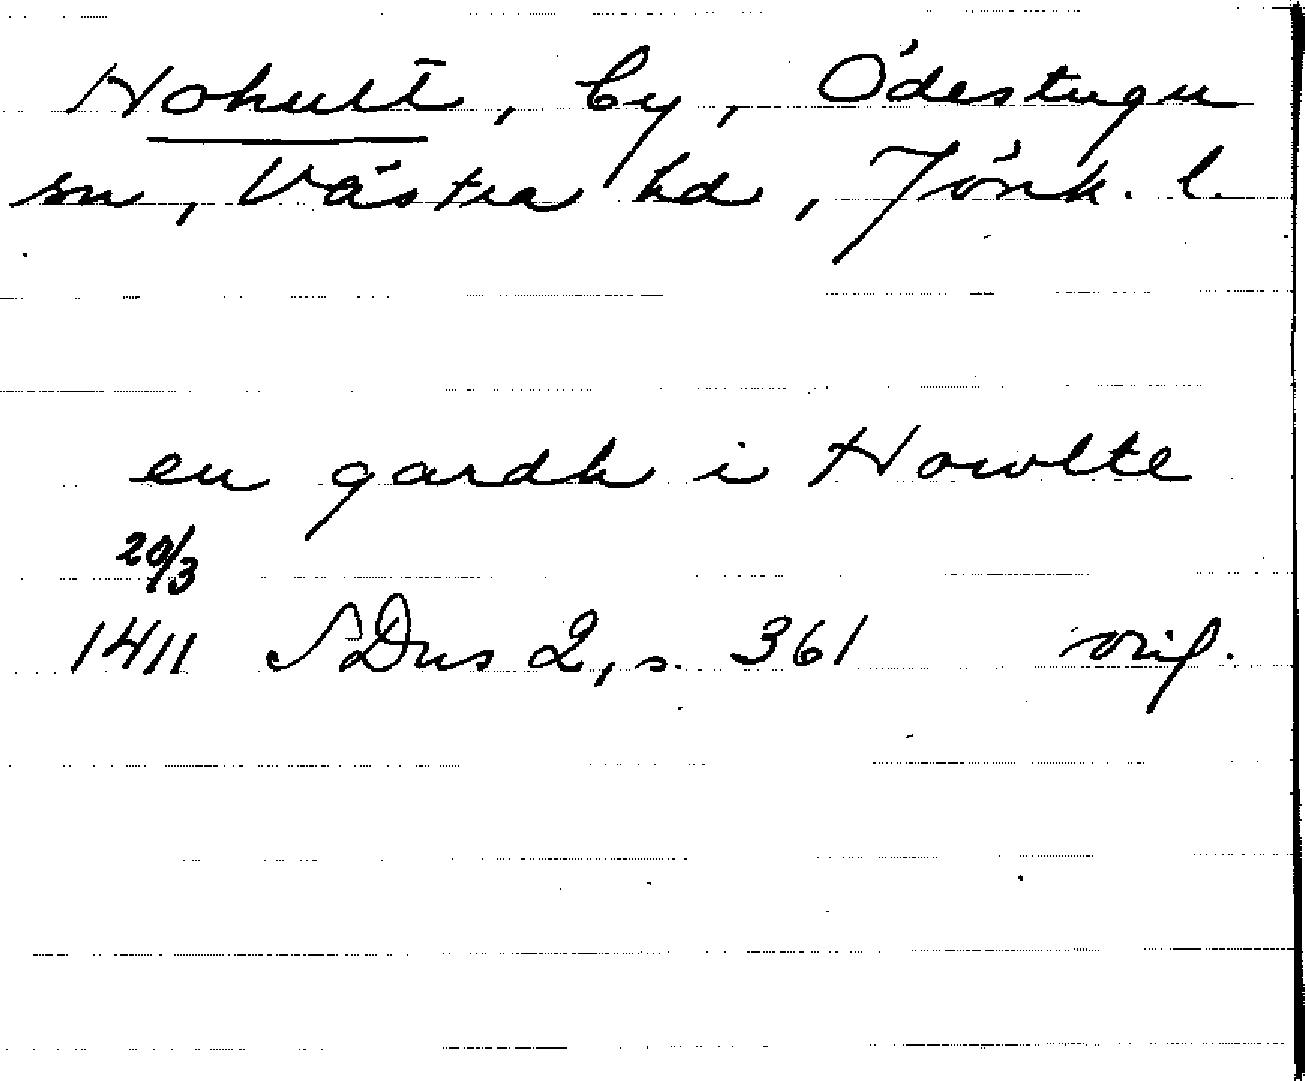 Hohult, by, Ödestugu
sn, Västra hd, Jönk. l.
en gardh i Howlte
20/3
1411 SDns 2, s. 361 orig.